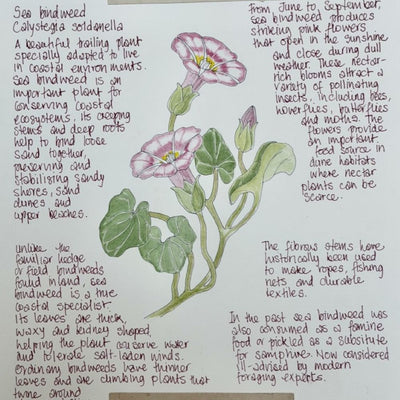 Sea bindweed
Calystegia soldanella
A beautiful trailing plant
specially adapted to live
in coastal environments.
Sea bindweed is an
important plant for
conserving coastal
ecosystems. Its creeping
stems and deep roots
help to bind loose
sand together,
preserving and
stabilising sandy
shores, sand
dunes and
upper beaches.
From June to September,
sea bindweed produces
striking pink flowers
that open in the sunshine
and close during dull
weather. These nectar-
rich blooms attract a
variety of pollinating
insects, including bees,
hoverflies, butterflies
and moths. The
flowers provide
an important
food source in
dune habitats
where nectar
plants can be
scarce.
Unlike the
familiar hedge
or field bindweeds
found inland, sea
bindweed is a true
coastal specialist.
Its leaves are thick,
waxy and kidney shaped,
helping the plant conserve water
and tolerate salt-laden winds.
Ordinary bindweeds have thinner
leaves and are climbing plants that
twine around
The fibrous stems have
historically been used
to make ropes, fishing
nets and durable
textiles.
In the past sea bindweed was
also consumed as a famine
food or pickled as a substitute
for samphire. Now considered
ill-advised by modern
foraging experts.